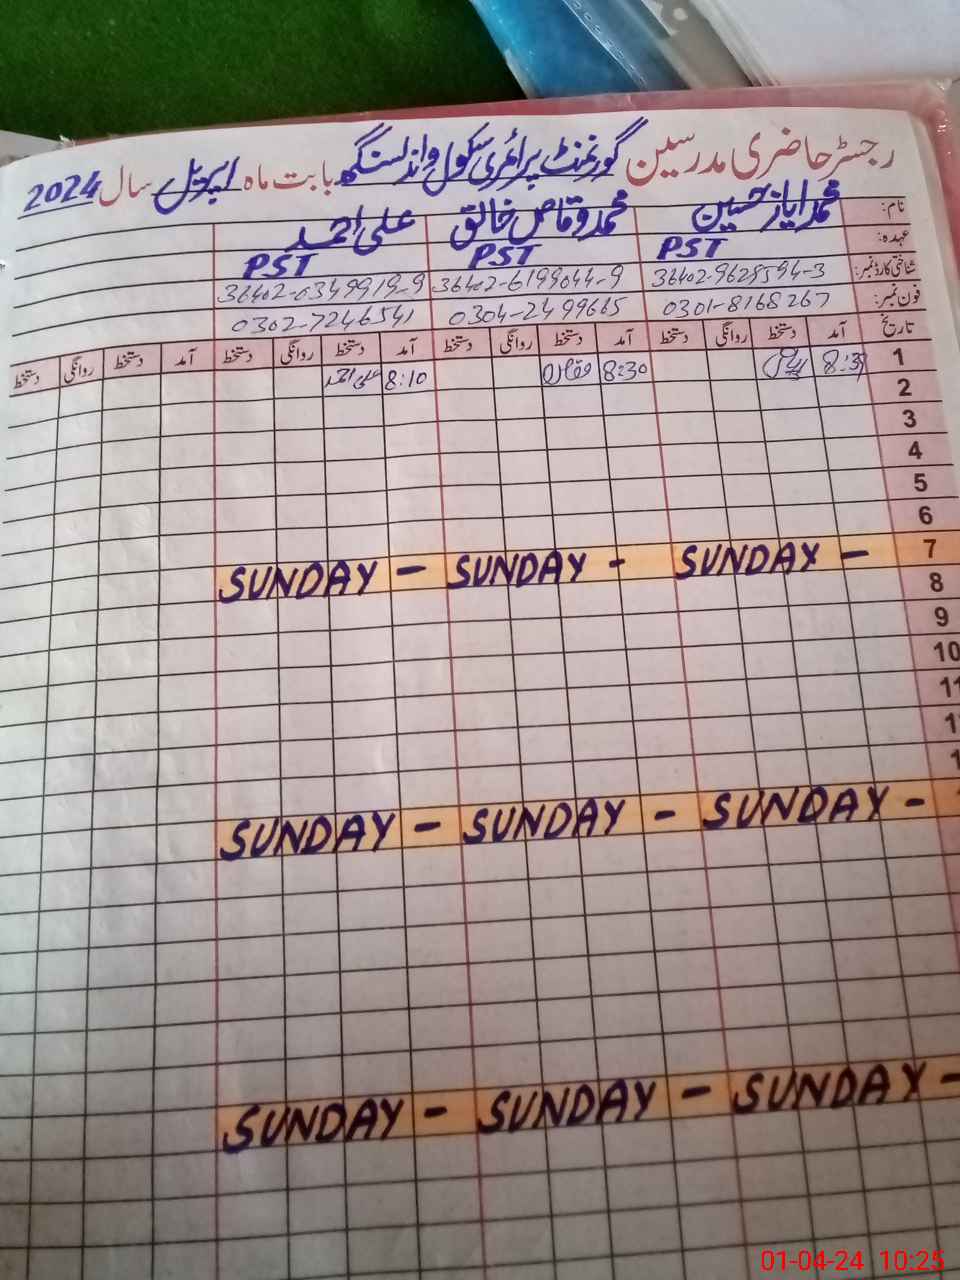 رجسٹر حاضری مدرسین گورنمنٹ پرائمری سکول واندلسنگھ بابت ماہ اپریل سال 2024
نام: محمد ایاز حسین محمد وقاص خالق علی احمد
عہدہ: PST PST PST
شناختی کارڈ نمبر: 36402-9628594-3 36402-6199044-9 36402-0349919-9
فون نمبر: 0301-8168267 0304-2499665 0302-7246541
تاریخ آمد دستخط روانگی دستخط آمد دستخط روانگی دستخط آمد دستخط روانگی دستخط آمد دستخط روانگی دستخط
1 8:30 8:10 علی احمد
2
3
4
5
6
7 SUNDAY - SUNDAY - SUNDAY -
8
9
10
11
SUNDAY - SUNDAY - SUNDAY -
SUNDAY - SUNDAY - SUNDAY -
01-04-24 10:25